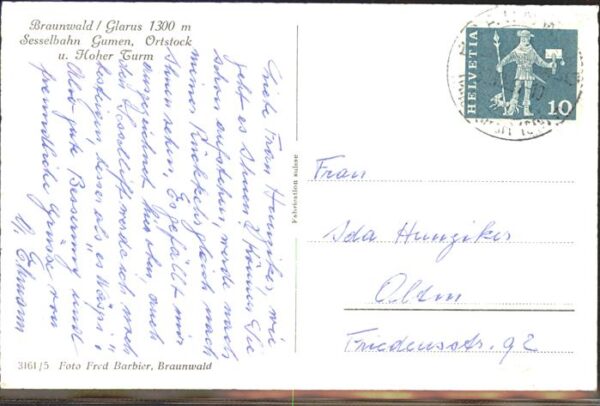 Braunwald / Glarus 1300 m
Sesselbahn Gumen, Ortstock
u. Hoher Turm
Liebe Frau Hunziker, wie
geht es Ihnen? Können Sie
schon aufstehen, werde nach
meiner Rückkehr gleich nach
Ihnen sehen. Es gefällt mir
ausgezeichnet hier oben, auch
den Sessellift werde ich noch
besteigen, besser als
Also gute Besserung und
freundliche Grüsse von
Fabrication suisse
HELVETIA
10
Frau
Ida Hunziker
Olten
Friedensstr. 92
3161/5 Foto Fred Barbier, Braunwald